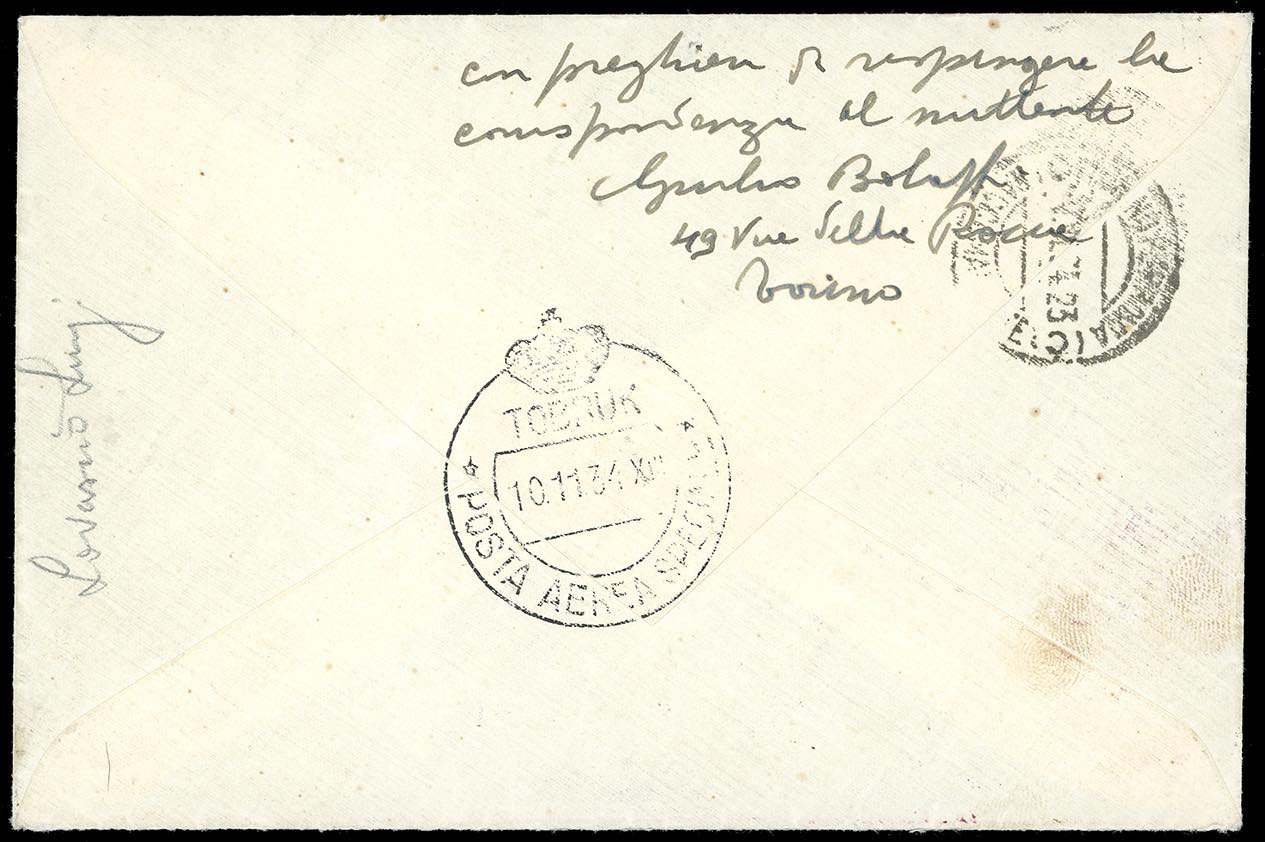 con preghiera di respingere la
corrispondenza al mittente
Giulio Bolaffi
49 Via della Rocca
Torino
TOBRUK
10.11.34 XIII
* POSTA AEREA SPECIALE *
23